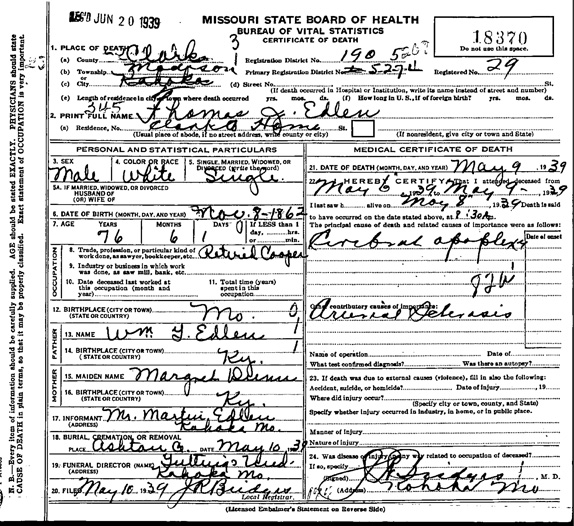 REC'D JUN 20 1939
MISSOURI STATE BOARD OF HEALTH
BUREAU OF VITAL STATISTICS
CERTIFICATE OF DEATH
18370
Do not use this space.
1. PLACE OF DEATH
3
(a) County Clark
Registration District No. 190
(b) Township Madison
1
Primary Registration District No. 5274
Registered No. 29
(c) City Kahoka
(d) Street No. St.
(If death occurred in Hospital or Institution, write its name instead of street and number)
(e) Length of residence in city or town where death occurred yrs. mos. ds. (f) How long in U. S., if of foreign birth? yrs. mos. ds.
345
2. PRINT FULL NAME Thomas J. Edlen
(a) Residence, No. Clark Co Home St.
(Usual place of abode, if no street address, write county or city) (If nonresident, give city or town and State)
PERSONAL AND STATISTICAL PARTICULARS
3. SEX Male
4. COLOR OR RACE White
5. SINGLE, MARRIED, WIDOWED, OR DIVORCED (write the word) Single
5A. IF MARRIED, WIDOWED, OR DIVORCED
HUSBAND OF
(OR) WIFE OF
6. DATE OF BIRTH (MONTH, DAY, AND YEAR) Nov. 8-1862
7. AGE YEARS 76 MONTHS 6 DAYS 1 If LESS than 1 day, hrs. or min.
OCCUPATION
8. Trade, profession, or particular kind of work done, as sawyer, bookkeeper, etc. Retired Cooper
9. Industry or business in which work was done, as saw mill, bank, etc.
10. Date deceased last worked at this occupation (month and year)
11. Total time (years) spent in this occupation
12. BIRTHPLACE (CITY OR TOWN) (STATE OR COUNTRY) Mo. 0
FATHER
13. NAME Wm. T. Edlen 1
14. BIRTHPLACE (CITY OR TOWN) (STATE OR COUNTRY) Ky. 1
MOTHER
15. MAIDEN NAME Margret
16. BIRTHPLACE (CITY OR TOWN) (STATE OR COUNTRY) Ky.
17. INFORMANT Mr. Martin Edlen
(ADDRESS) Kahoka Mo.
18. BURIAL, CREMATION, OR REMOVAL
PLACE Ashton DATE May 10 1939
19. FUNERAL DIRECTOR (NAME)
(ADDRESS) Kahoka Mo.
20. FILED May 10 1939 J R Bridges
Local Registrar.
MEDICAL CERTIFICATE OF DEATH
21. DATE OF DEATH (MONTH, DAY, AND YEAR) May 9 1939
22. I HEREBY CERTIFY, That I attended deceased from
May 6 1939 to May 9 1939
I last saw h alive on May 8 1939 Death is said
to have occurred on the date stated above, at 8:30 A m.
The principal cause of death and related causes of importance were as follows:
Date of onset
Cerebral apoplexy
Other contributory causes of importance:
Arterial Sclerosis
Name of operation Date of
What test confirmed diagnosis? Was there an autopsy?
23. If death was due to external causes (violence), fill in also the following:
Accident, suicide, or homicide? Date of injury 19
Where did injury occur?
(Specify city or town, county, and State)
Specify whether injury occurred in industry, in home, or in public place.
Manner of injury
Nature of injury
24. Was disease or injury in any way related to occupation of deceased?
If so, specify
(Signed) J R Bridges, M. D.
(Address) Kahoka Mo
(Licensed Embalmer's Statement on Reverse Side)
N. B.—Every item of information should be carefully supplied. AGE should be stated EXACTLY. PHYSICIANS should state
CAUSE OF DEATH in plain terms, so that it may be properly classified. Exact statement of OCCUPATION is very important.